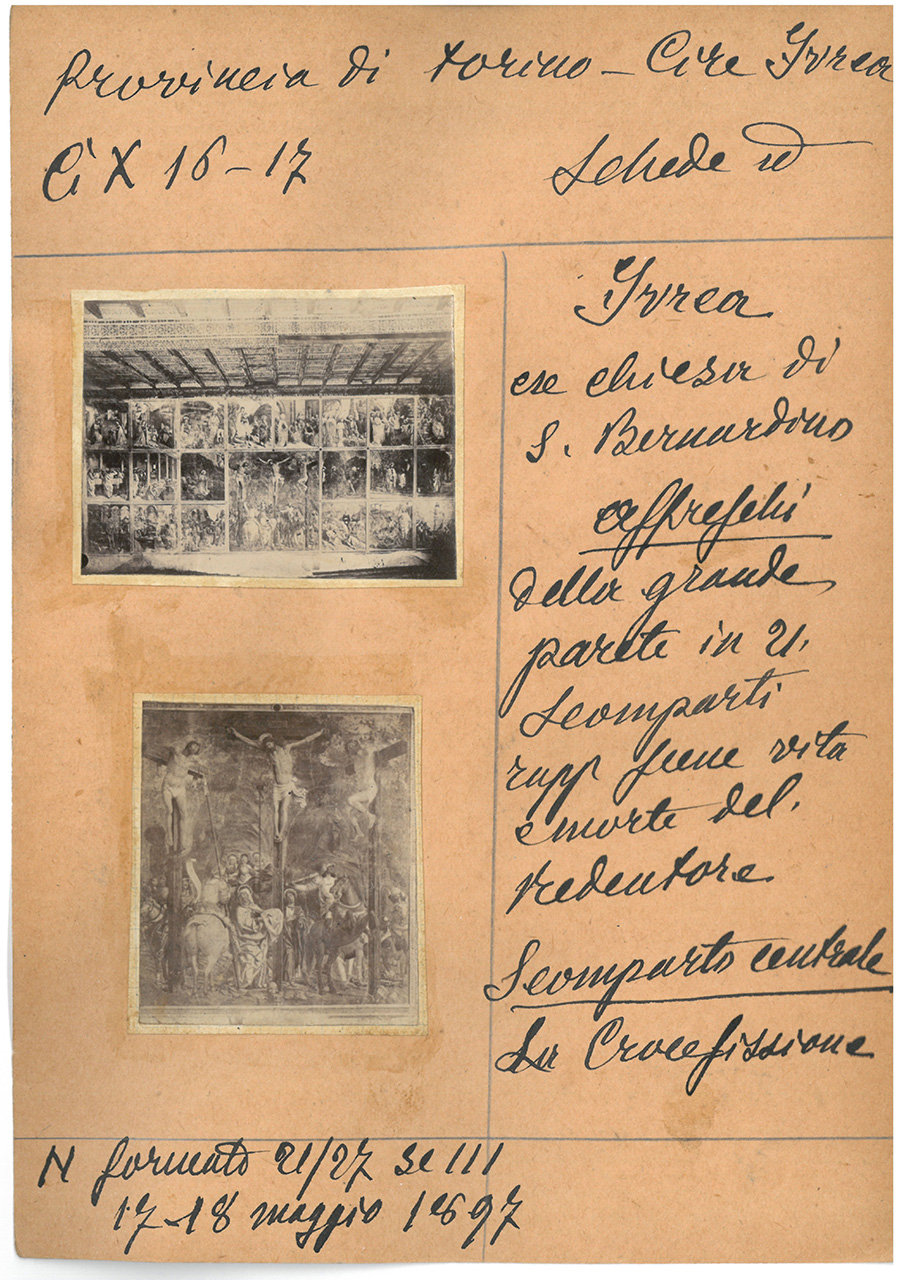 Provincia di Torino – Circ Ivrea
Ci X 16–17
Schede
Ivrea
ex chiesa di
S. Bernardino
affreschi
della grande
parete in 21.
Scomparti
rapp scene vita
e morte del.
Redentore
Scomparto centrale
La Crocefissione
N formato 21/27 Se III
17–18 maggio 1897